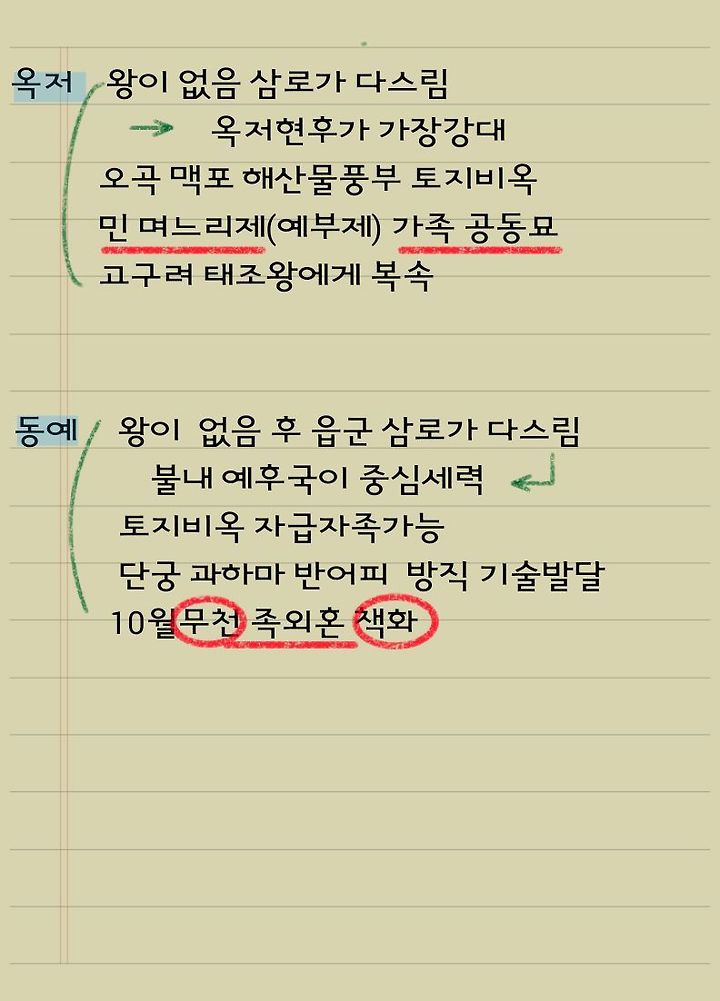 옥저 왕이 없음 삼로가 다스림
→ 옥저현후가 가장강대
오곡 맥포 해산물풍부 토지비옥
민 며느리제(예부제) 가족 공동묘
고구려 태조왕에게 복속
동예 왕이 없음 후 읍군 삼로가 다스림
불내 예후국이 중심세력
토지비옥 자급자족가능
단궁 과하마 반어피 방직 기술발달
10월무천 족외혼 책화